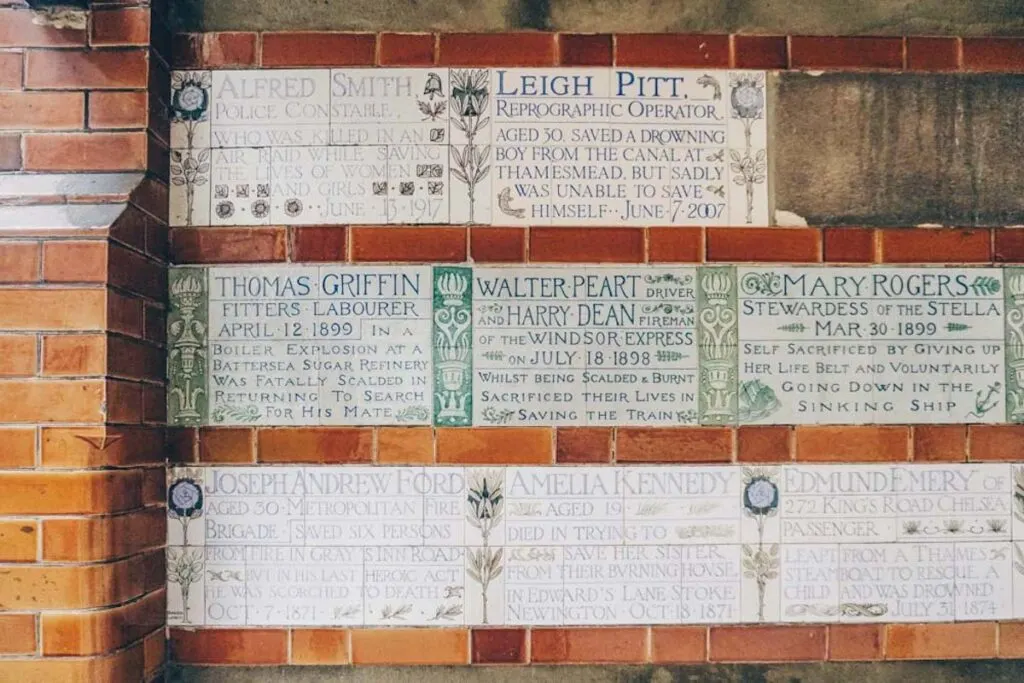 ALFRED SMITH,
POLICE CONSTABLE,
WHO WAS KILLED IN AN
AIR RAID WHILE SAVING
THE LIVES OF WOMEN
AND GIRLS
··JUNE·13·1917
LEIGH PITT,
REPROGRAPHIC OPERATOR
AGED 30, SAVED A DROWNING
BOY FROM THE CANAL AT
THAMESMEAD, BUT SADLY
WAS UNABLE TO SAVE
HIMSELF··JUNE·7·2007
THOMAS·GRIFFIN
FITTERS·LABOURER
APRIL·12·1899 IN A
BOILER EXPLOSION AT A
BATTERSEA SUGAR REFINERY
WAS FATALLY SCALDED IN
RETURNING TO SEARCH
FOR HIS MATE
WALTER·PEART DRIVER
AND HARRY·DEAN FIREMAN
OF THE WINDSOR·EXPRESS
ON JULY·18·1898
WHILST BEING SCALDED & BURNT
SACRIFICED THEIR LIVES IN
SAVING THE TRAIN
MARY·ROGERS
STEWARDESS OF THE STELLA
MAR·30·1899
SELF SACRIFICED BY GIVING UP
HER LIFE BELT AND VOLUNTARILY
GOING DOWN IN THE
SINKING SHIP
JOSEPH ANDREW FORD
AGED 30·METROPOLITAN FIRE
BRIGADE· SAVED SIX PERSONS
FROM FIRE IN GRAY'S INN ROAD
BUT IN HIS LAST HEROIC ACT
HE WAS SCORCHED TO DEATH
OCT 7·1871
AMELIA KENNEDY
AGED 19
DIED IN TRYING TO
SAVE HER SISTER
FROM THEIR BVRNING HOVSE
IN EDWARD'S LANE STOKE
NEWINGTON OCT·18·1871
EDMUND EMERY OF
272 KING'S ROAD CHELSEA
PASSENGER
LEAPT FROM A THAMES
STEAMBOAT TO RESCUE A
CHILD AND WAS DROWNED
JULY 31·1874